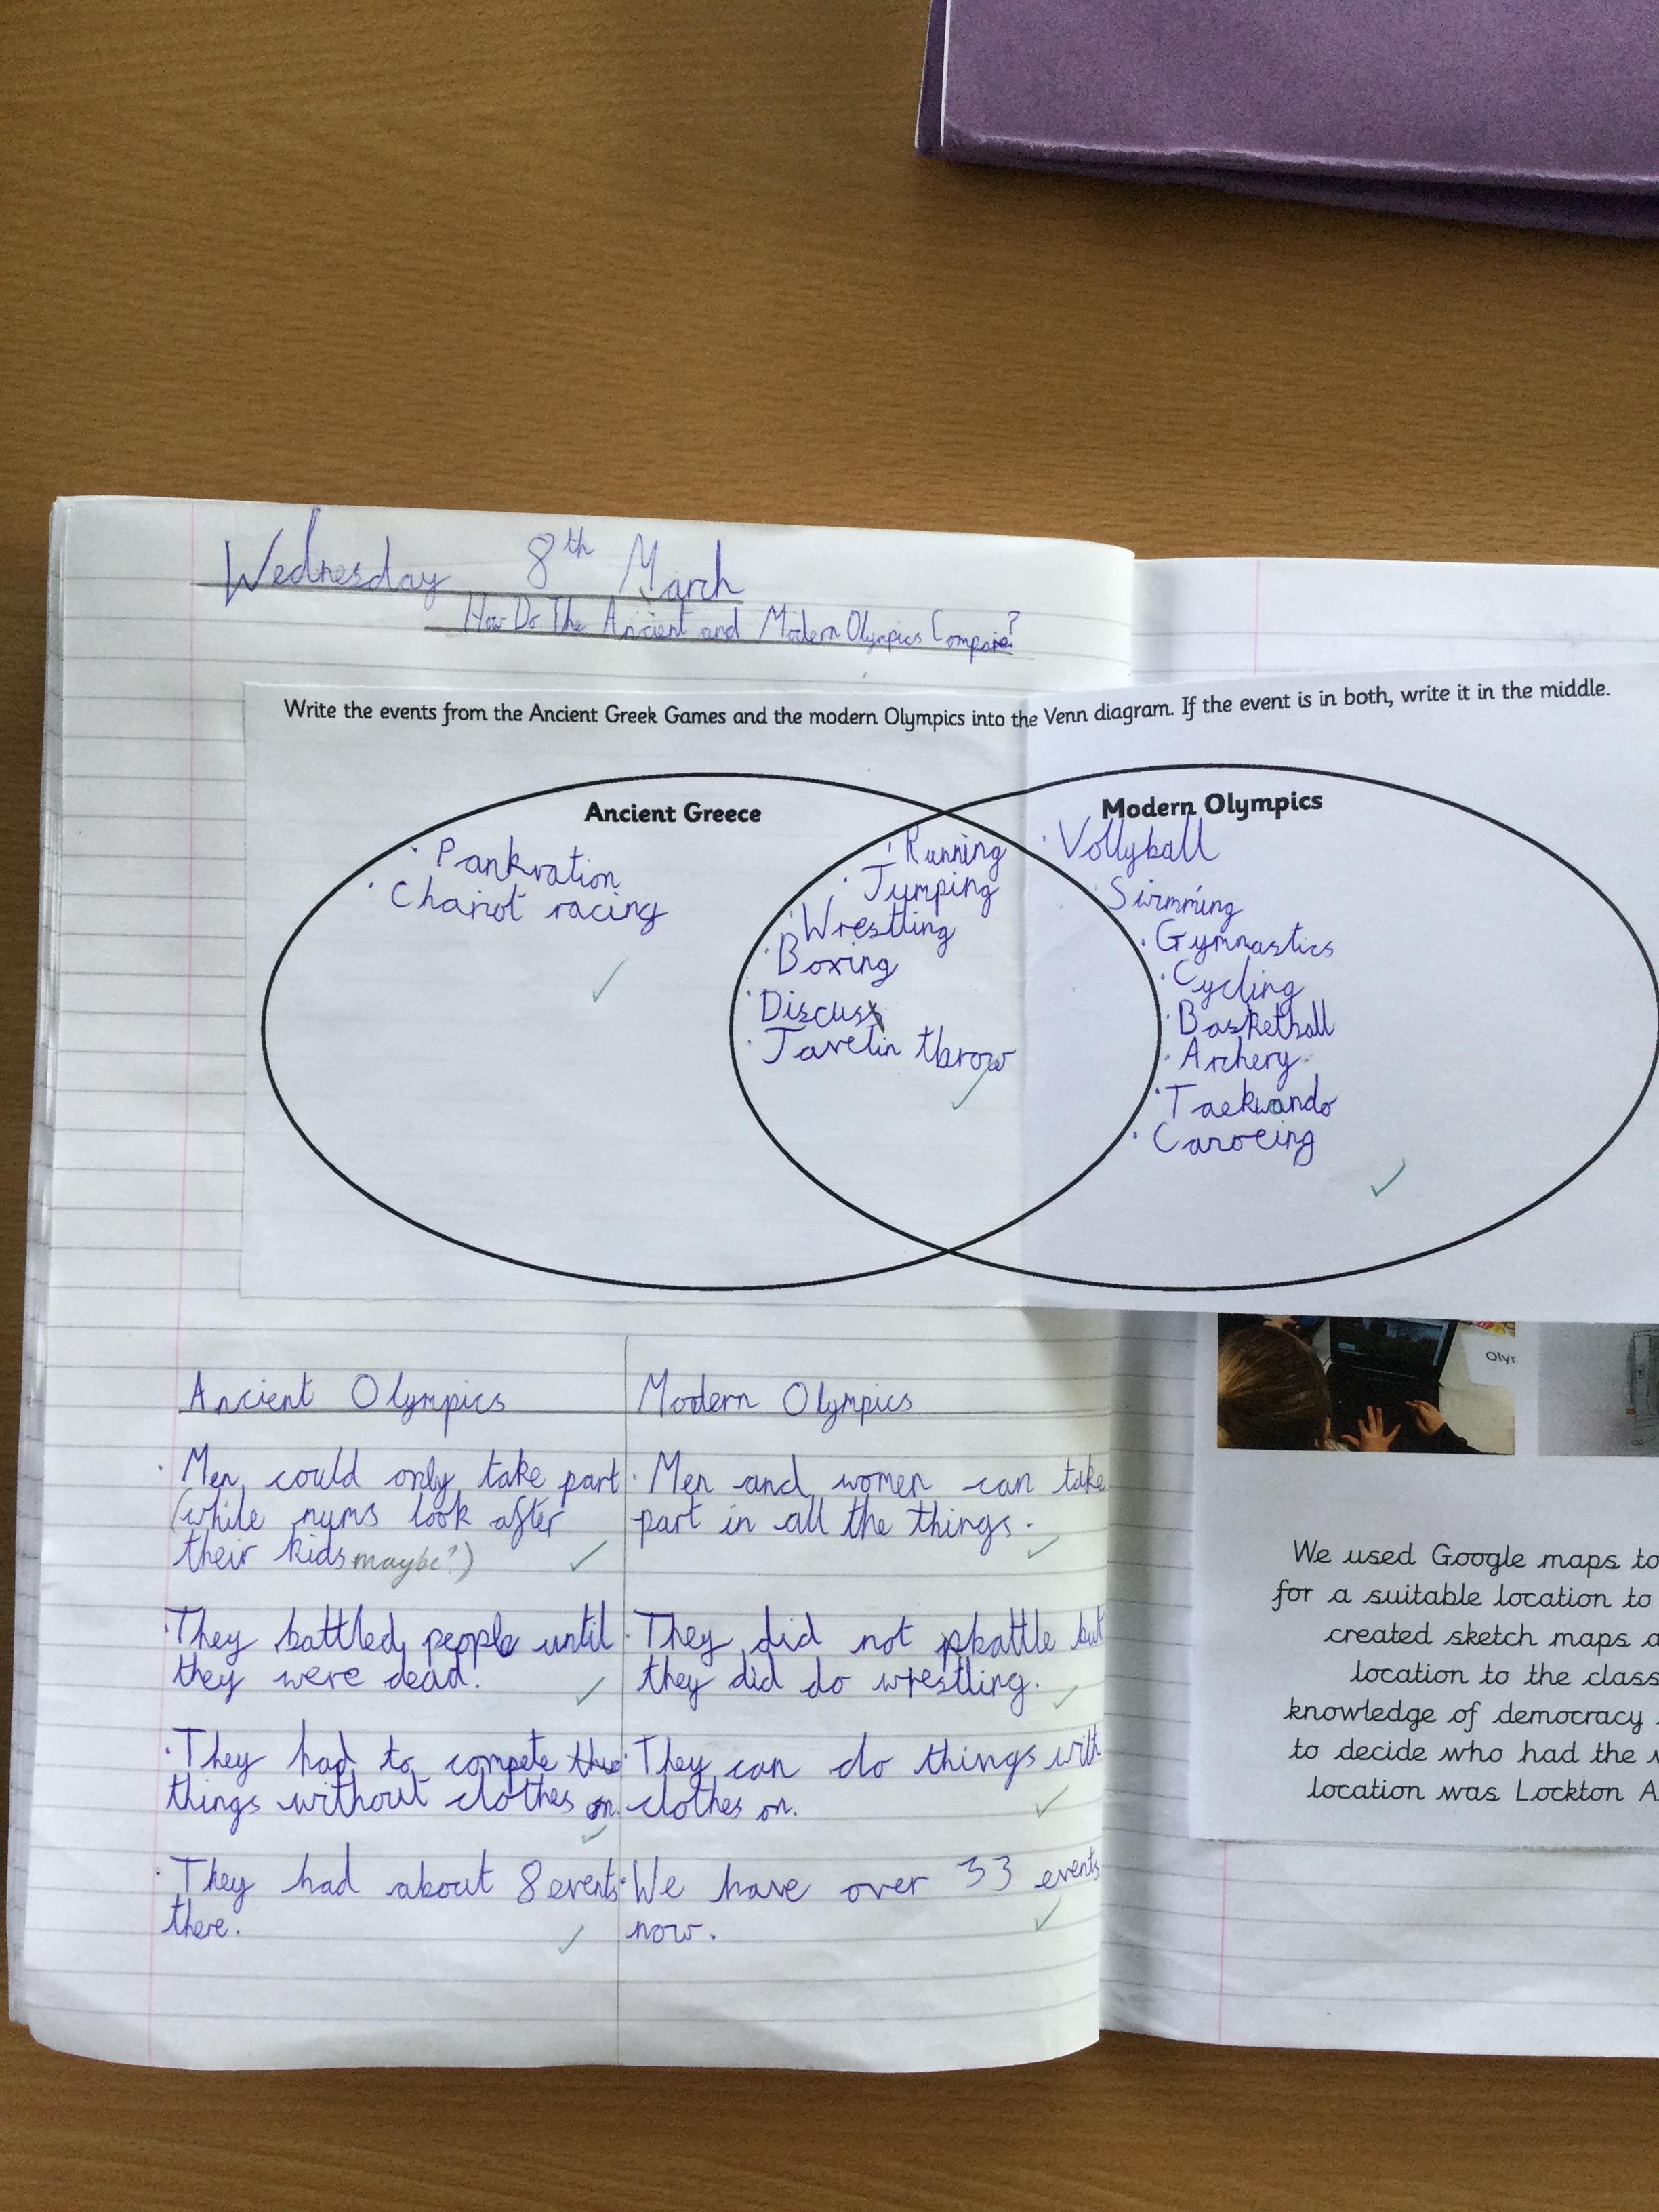 Wednesday 8th March
How Do The Ancient and Modern Olympics Compare?
Write the events from the Ancient Greek Games and the modern Olympics into the Venn diagram. If the event is in both, write it in the middle.
Ancient Greece
· Pankration
· Chariot racing
· Running
· Jumping
· Wrestling
· Boxing
· Discus
· Javelin throw
Modern Olympics
· Vollyball
· Swimming
· Gymnastics
· Cycling
· Basketball
· Archery
· Taekwando
· Canoeing
Ancient Olympics
· Men could only take part
(while mums look after
their kids maybe?)
· They battled people until
they were dead.
· They had to compete
things without clothes on.
· They had about 8 events
there.
Modern Olympics
· Men and women can take
part in all the things.
· They did not battle but
they did do wrestling.
· They can do things with
clothes on.
· We have over 33 events
now.
Olyr
We used Google maps to
for a suitable location to
created sketch maps a
location to the class
knowledge of democracy
to decide who had the
location was Lockton A